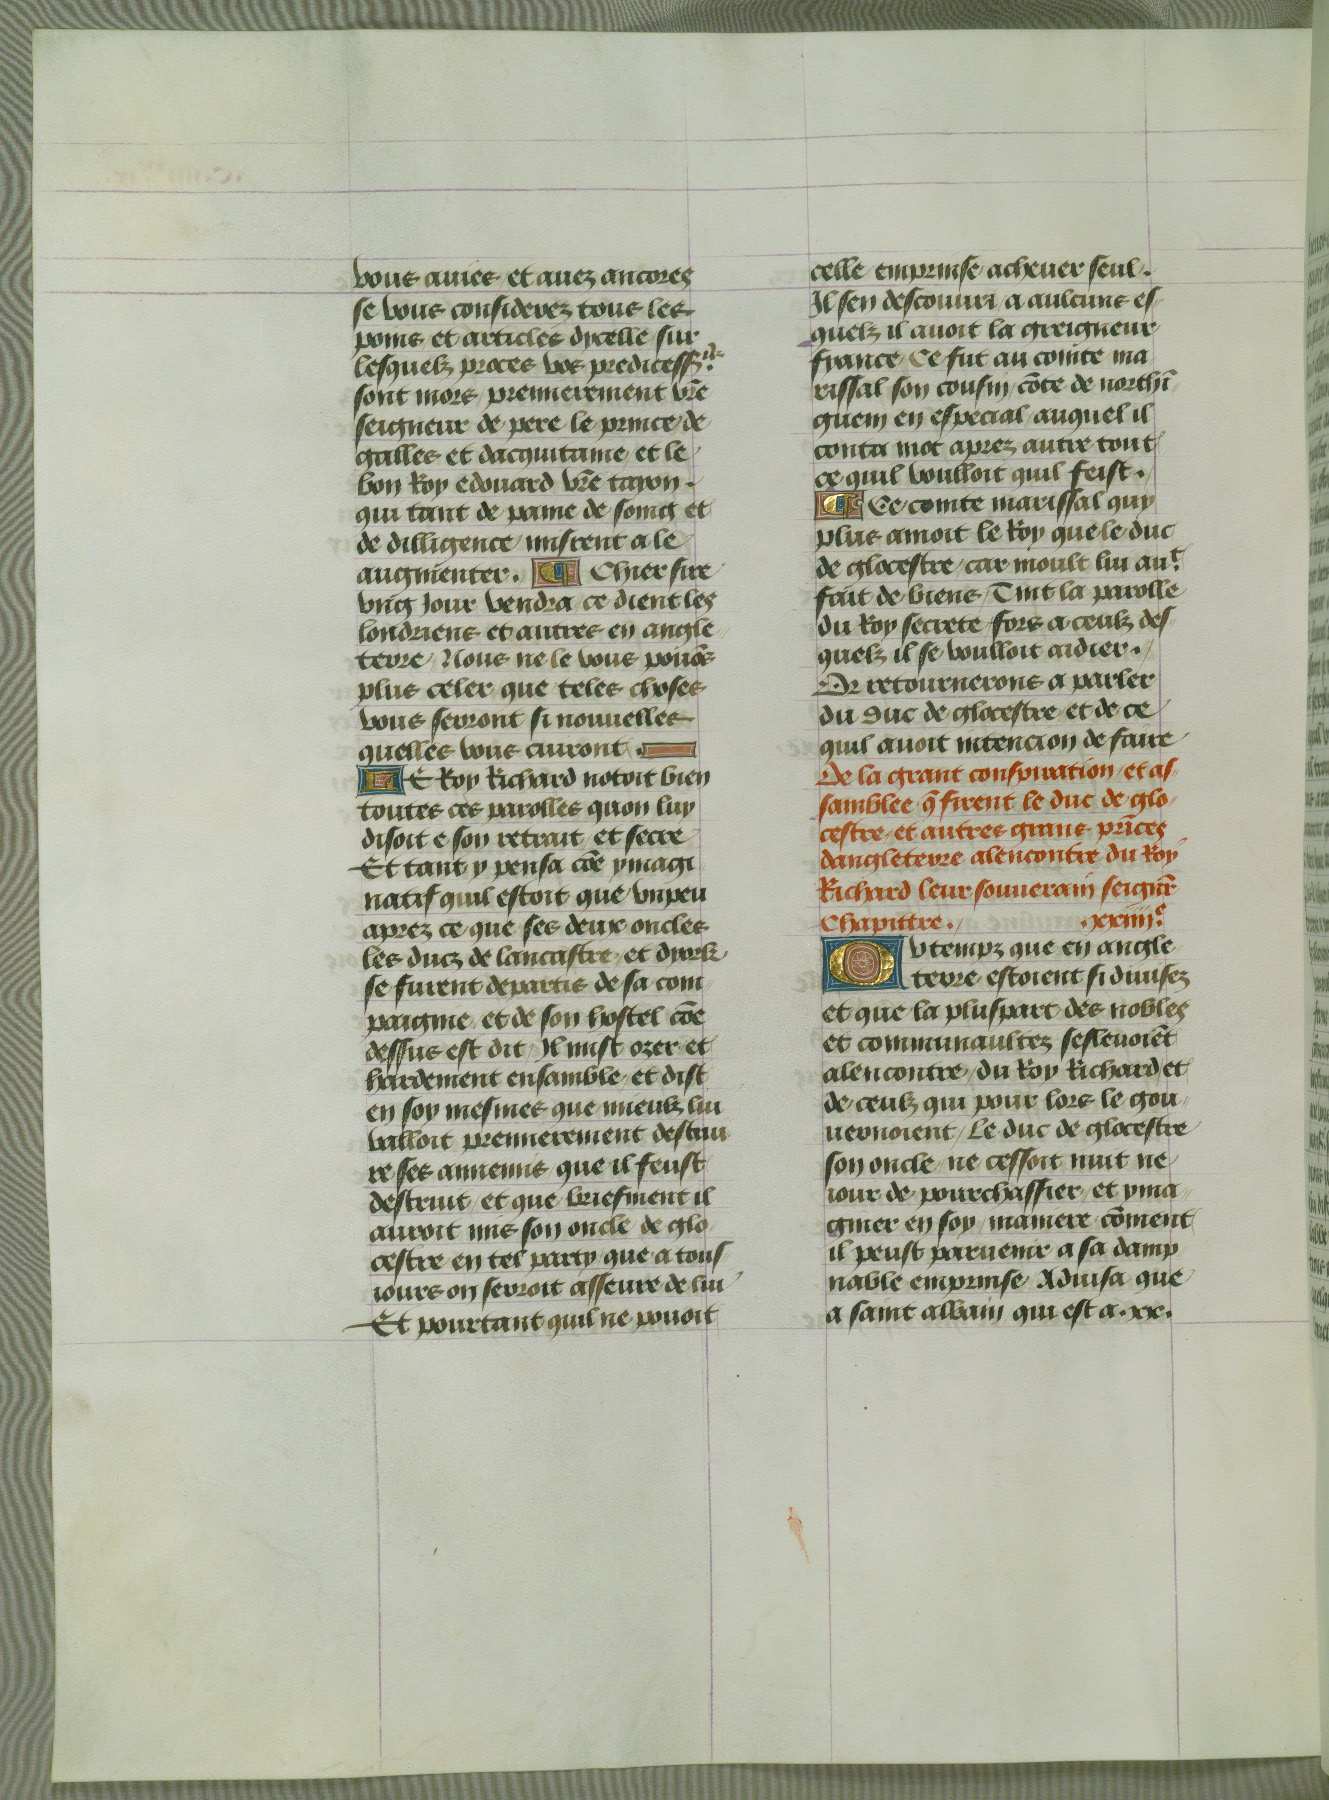 vous auies et auez ancores
se vous considerez tous les
poins et articles dycelle sur
lesquelz proces vos predicess.rs
sont mors premierement vr̄e
seigneur de pere le prince de
galles et dacquitaine et le
bon Roy edouard vr̄e tayon.
qui tant de paine de soing et
de dilligence mistrent a le
augmenter. ¶ Chier sire
vng Jour vendra ce dient les
londriens et autres en angle
terre / Nous ne le vous pouōs
plus celer que teles choses
vous seront si nouuelles
quelles vous cuiront.
LE Roy Richard notoit bien
toutes ces parolles quon luy
disoit e son retrait et secre
Et tant y pensa cōe ymagi
natif quil estoit que vn peu
aprez ce que ses deux oncles
les ducz de lancastre et dyork
se furent departis de sa com
paignie et de son hostel cōe
dessus est dit / Il mist ozer et
hardement ensamble et dist
en soy mesmes que mieulz lui
valloit premierement destrui
re ses annemis que il feust
destruit et que briefment il
auroit mis son oncle de glo
cestre en tel party que a tous
iours on seroit asseure de lui
Et pourtant quil ne pouoit
celle emprinse acheuer seul.
Il sen descouuri a aulcuns es
quelz il auoit la greigneur
fiance Ce fut au comte ma
rissal son cousin cōte de northī
guem en especial auquel il
conta mot aprez autre tout
ce quil voulloit quil feist.
¶ Ce comte marissal quy
plus amoit le Roy que le duc
de glocestre car moult lui au.t
fait de biens / Tint la parolle
du Roy secrete fors a ceulz des
quelz il se voulloit aidier.
Or retournerons a parler
du Duc de glocestre et de ce
quil auoit intencion de faire
De la grant conspiration et as
samblee q̄ firent le duc de glo
cestre et autres grans prīces
dangleterre alencontre du Roy
Richard leur souuerain seignr̄
Chapittre. .xxiiii.e
OU temps que en angle
terre estoient si diuisez
et que la pluspart des nobles
et communaultez sesleuoiēt
alencontre du Roy Richard et
de ceulz qui pour lors le gou
uernoient / Le duc de glocestre
son oncle ne cessoit nuit ne
iour de pourchassier et yma
giner en soy maniere cōment
il peust paruenir a sa damp
nable emprinse Aduisa que
a saint albain qui est a .xx.